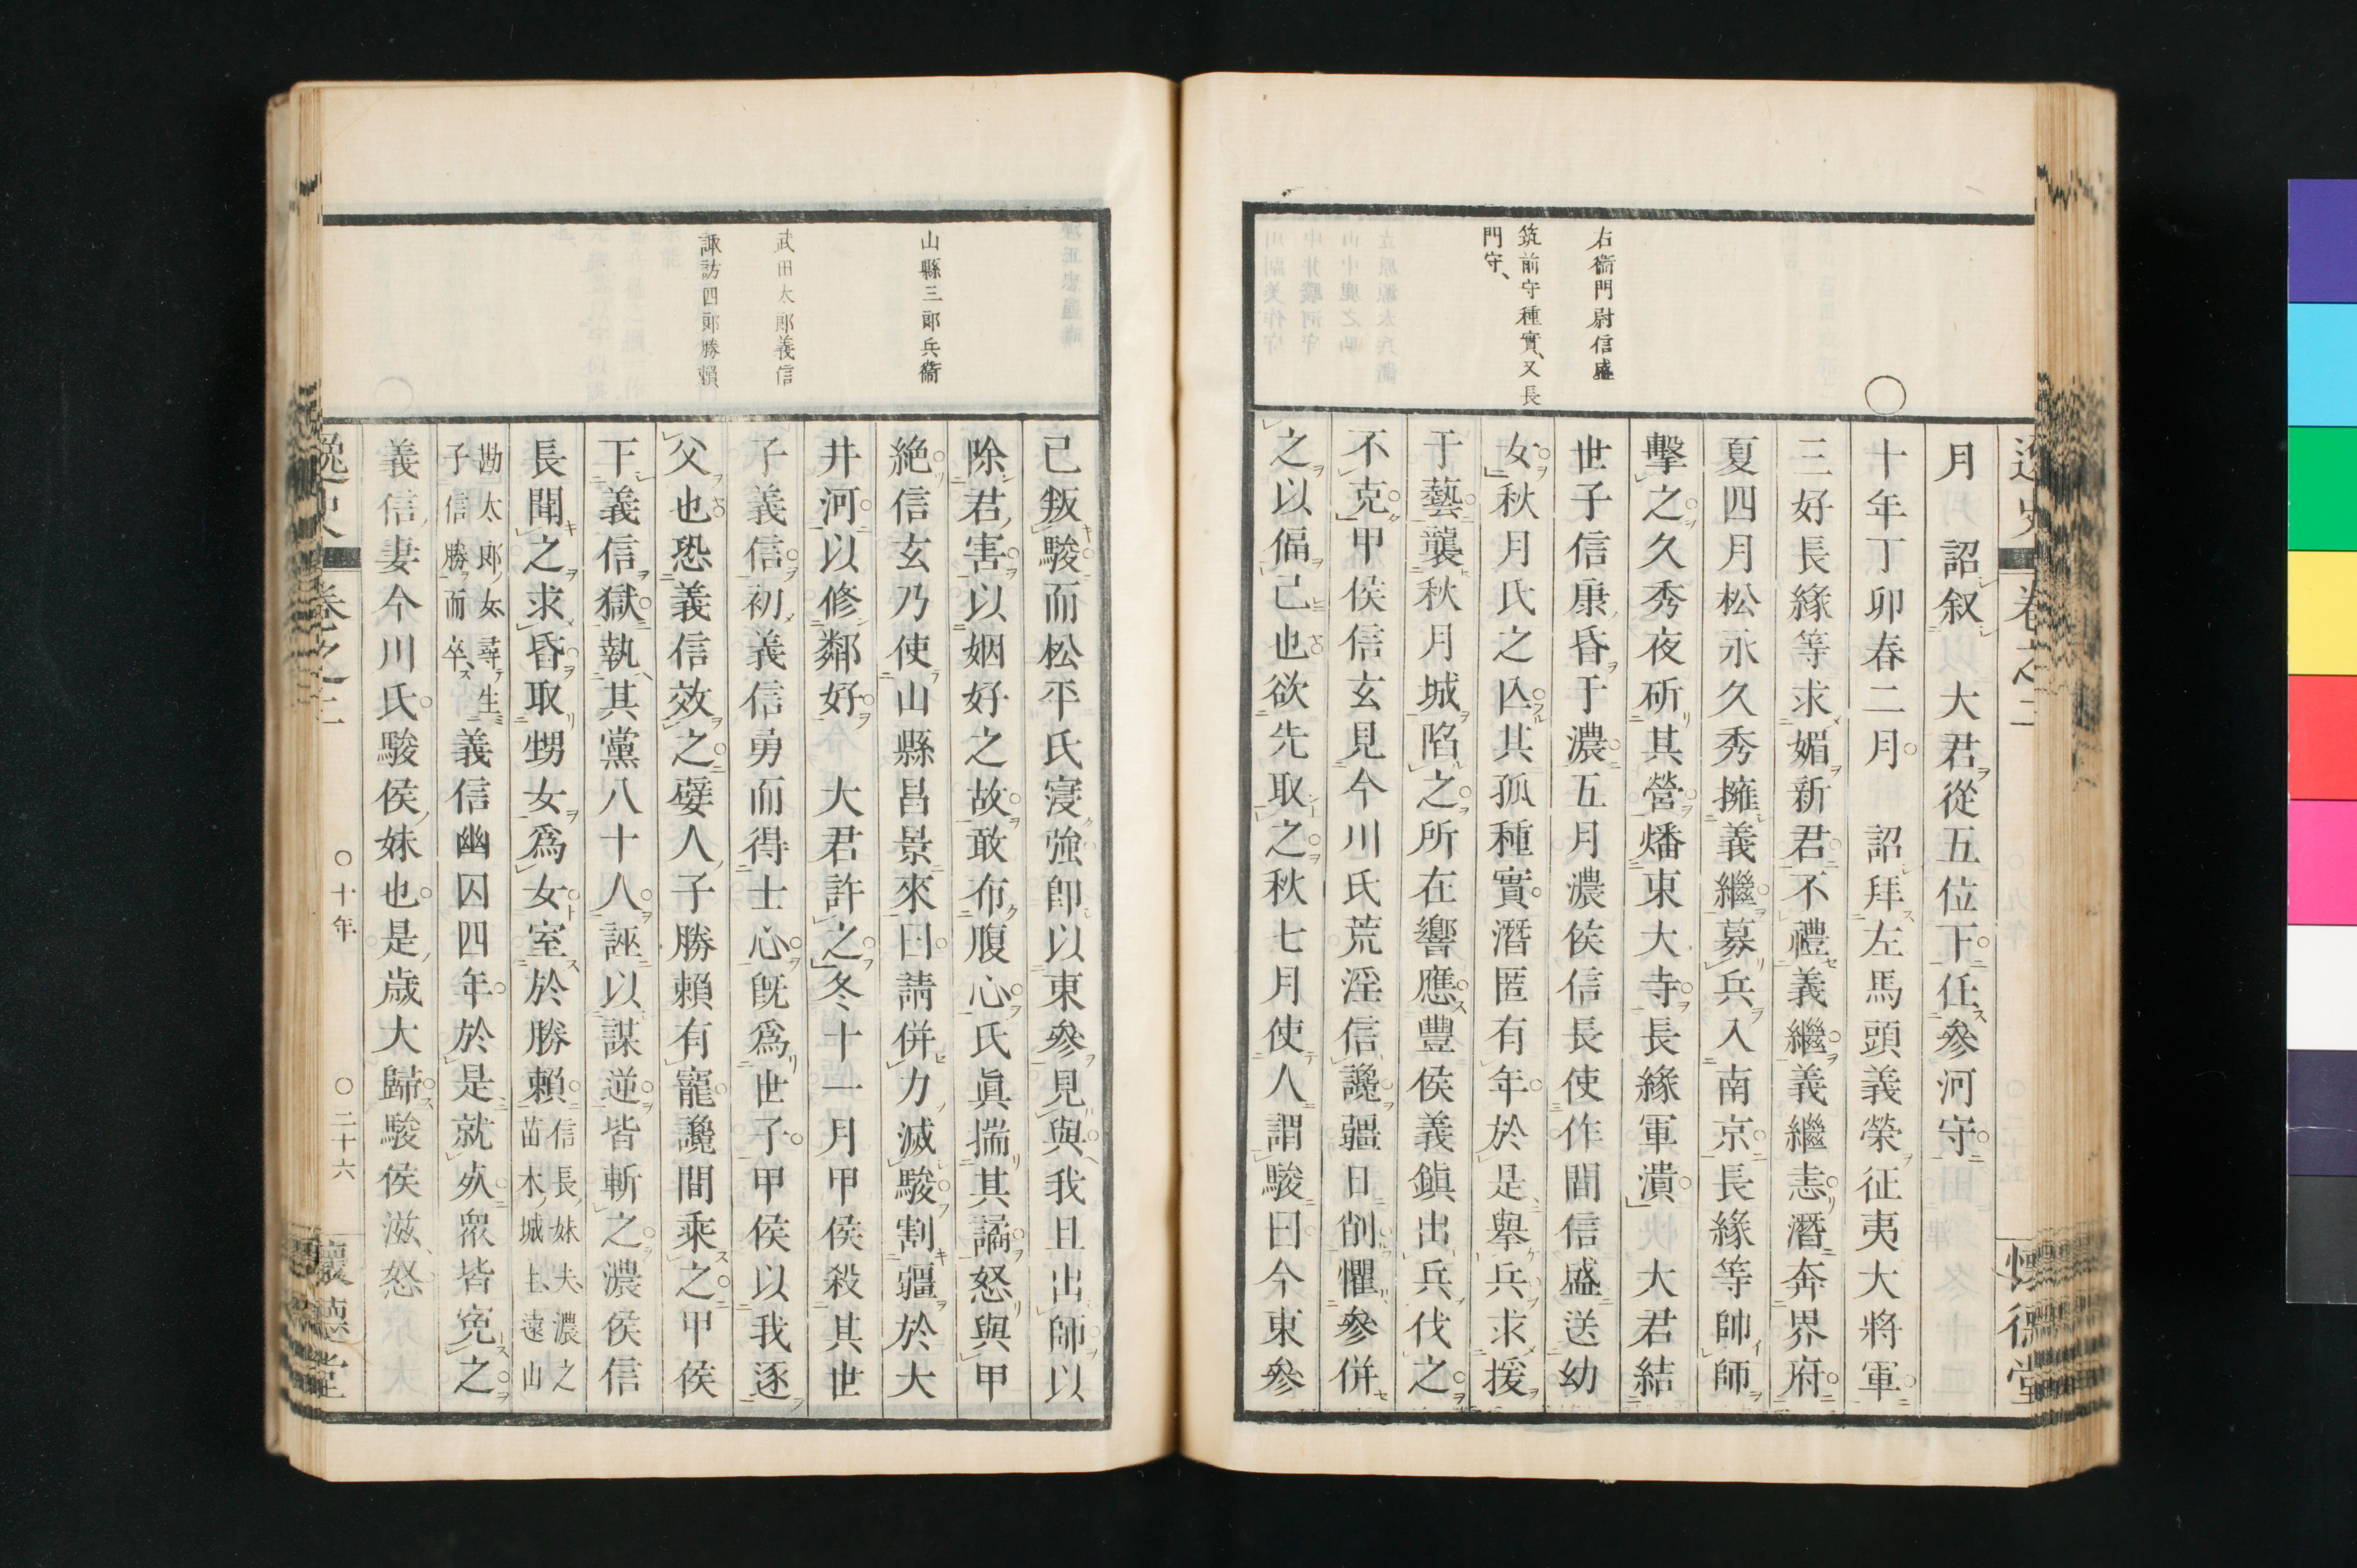 逸史 卷之二 懷德堂
月 詔叙 大君從五位下任參河守
十年丁卯春二月 詔拜左馬頭義榮征夷大將軍
三好長緣等求媚新君不禮義繼義繼恚潛奔界府
夏四月松永久秀擁義繼募兵入南京長緣等帥師
擊之久秀夜斫其營燔東大寺長緣軍潰 大君結
世子信康昏于濃五月濃侯信長使作間信盛送幼
女秋月氏之亾其孤種實潛匿有年於是擧兵求援
于藝襲秋月城陷之所在響應豐侯義鎭出兵伐之
不克甲侯信玄見今川氏荒淫信讒疆日削懼參併
之以偪己也欲先取之秋七月使人謂駿曰今東參
右衞門尉信盛
筑前守種實、又長
門守、
已叛駿而松平氏寖強卽以東參見與我且出師以
除君害以姻好之故敢布腹心氏眞揣其譎怒與甲
絶信玄乃使山縣昌景來曰請併力滅駿割疆於大
井河以修鄰好 大君許之冬十一月甲侯殺其世
子義信初義信勇而得士心旣爲世子甲侯以我逐
父也恐義信效之嬖人子勝賴有寵讒間乘之甲侯
下義信獄執其黨八十人誣以謀逆皆斬之濃侯信
長聞之求昏取甥女爲女室於勝賴信長妹夫濃之
苗木城主遠山
勘太郎女尋生
子信勝而卒義信幽囚四年於是就死眾皆寃之
義信妻今川氏駿侯妹也是歲大歸駿侯滋怒
山縣三郎兵衞
武田太郎義信
諏訪四郎勝賴
逸史 卷之二 十年 二十六 懷德堂